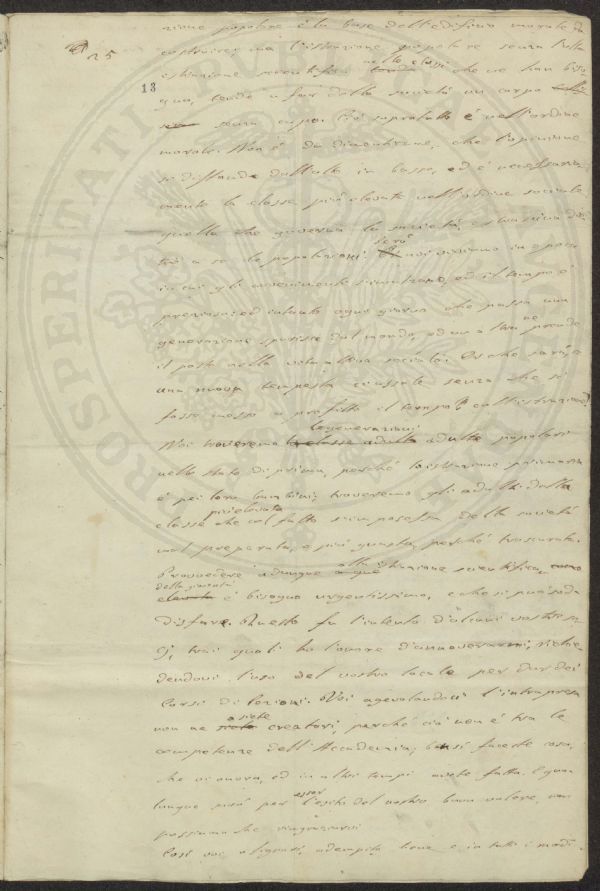 25
13
zione popolare è la base dell'edifizio morale da
costruirsi; ma l'istruzione popolare senza l'alta
istruzione scientifica nelle classi che ne han biso-
gno, tende a far della società un corpo
senza capo. Ciò sopratutto è nell'ordine
morale. Non è da dimenticare, che l'opinione
si diffonde dall'alto in basso, ed è necessaria-
mente la classe più elevata nell'ordine sociale
quella che governa la società, e
a se le popolazioni. Però noi viviamo in epoca
in cui gli avvenimenti s'incalzano, ed il tempo è
prezioso: ed intanto ogni giorno che passa una
generazione sparisce dal mondo, ed un'altra ne prende
il posto nella vita attiva sociale. Or che sarà, se
una nuova tempesta ci assale senza che si
fosse messo a profitto il tempo, coll'istruzione?
Noi troveremo le generazioni adulte popolari
nello stato di prima, perchè l'istruzione primaria
è pei loro bambini; troveremo gli adulti della
classe più elevata che col fatto s'impossessa della società
mal preparata, e più guasta, perchè trascurata.
Provvedere adunque alla istruzione scientifica
della gioventù è bisogno urgentissimo, e che si può sod-
disfare. Questo fu l'intento d'alcuni vostri so-
cj, trai quali ho l'onore d'annoverarmi, richie-
dendovi l'uso del vostro locale per dar dei
Corsi di lezioni. Voi agevolandoci l'intrapresa
non ne siete creatori, perchè ciò non è tra le
competenze dell'Accademia; bensì faceste cosa,
che vi onora, ed in altri tempi avete fatta. E qua-
lunque possa per esser l'esito del vostro buon volere, non
possiamo che ringraziarvi
Così voi, o Signori, adempite bene e in tutti i modi
PROSPERITATI PUBLICAE AUGENDAE